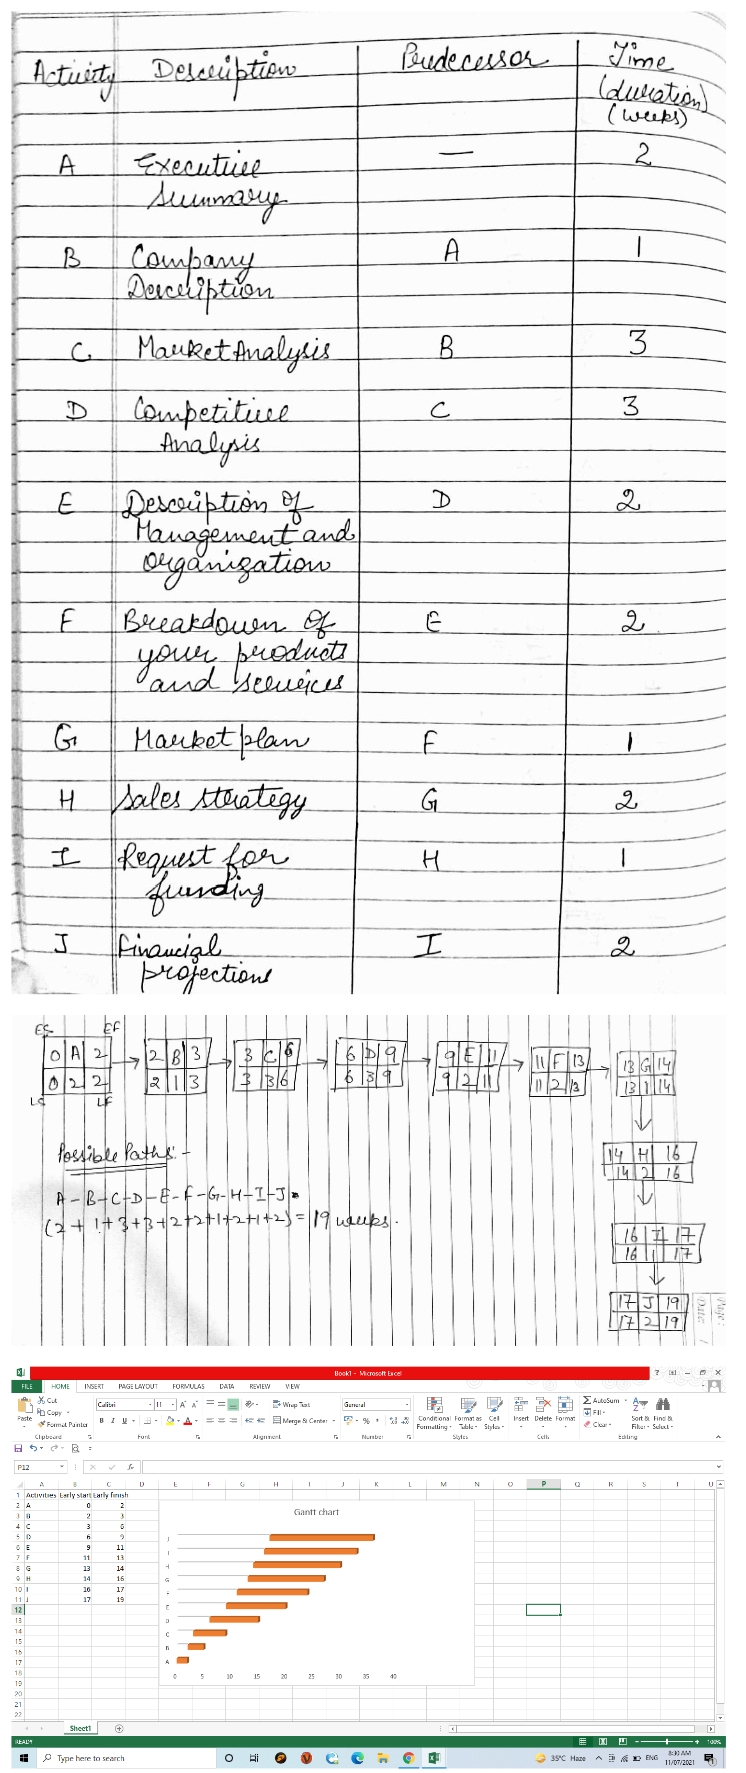 Activity Description Predecessor Time
(duration)
(weeks)
A Executive — 2
Summary
B Company A 1
Description
C Market Analysis B 3
D Competitive C 3
Analysis
E Description of D 2
Management and
organization
F Breakdown of E 2
your products
and services
G Market plan F 1
H Sales strategy G 2
I Request for H 1
funding
J Financial I 2
projections
ES EF
0 A 2 2 B 3 3 C 6 6 D 9 9 E 11 11 F 13 13 G 14
0 2 2 2 1 3 3 3 6 6 3 9 9 2 11 11 2 13 13 1 14
LS LF
Possible Paths:-
14 H 16
14 2 16
A-B-C-D-E-F-G-H-I-J
(2+1+3+3+2+2+1+2+1+2) = 19 weeks.
16 I 17
16 1 17
17 J 19
17 2 19
Page:
Date:
Book1 - Microsoft Excel
FILE HOME INSERT PAGE LAYOUT FORMULAS DATA REVIEW VIEW
Cut
Copy
Paste
Format Painter
Calibri 11
Wrap Text
Merge & Center
General
Conditional Format as Cell
Formatting Table Styles
Insert Delete Format
AutoSum
Fill
Clear
Sort & Find &
Filter Select
Clipboard Font Alignment Number Styles Cells Editing
P12 fx
A B C D E F G H I J K L M N O P Q R S T U
1 Activities Early start Early finish
2 A 0 2
3 B 2 3
4 C 3 6
5 D 6 9
6 E 9 11
7 F 11 13
8 G 13 14
9 H 14 16
10 I 16 17
11 J 17 19
12
13
14
15
16
17
18
19
20
21
22
Gantt chart
J
I
H
G
F
E
D
C
B
A
0 5 10 15 20 25 30 35 40
Sheet1
READY 100%
Type here to search 35°C Haze ENG 8:30 AM
11/07/2021